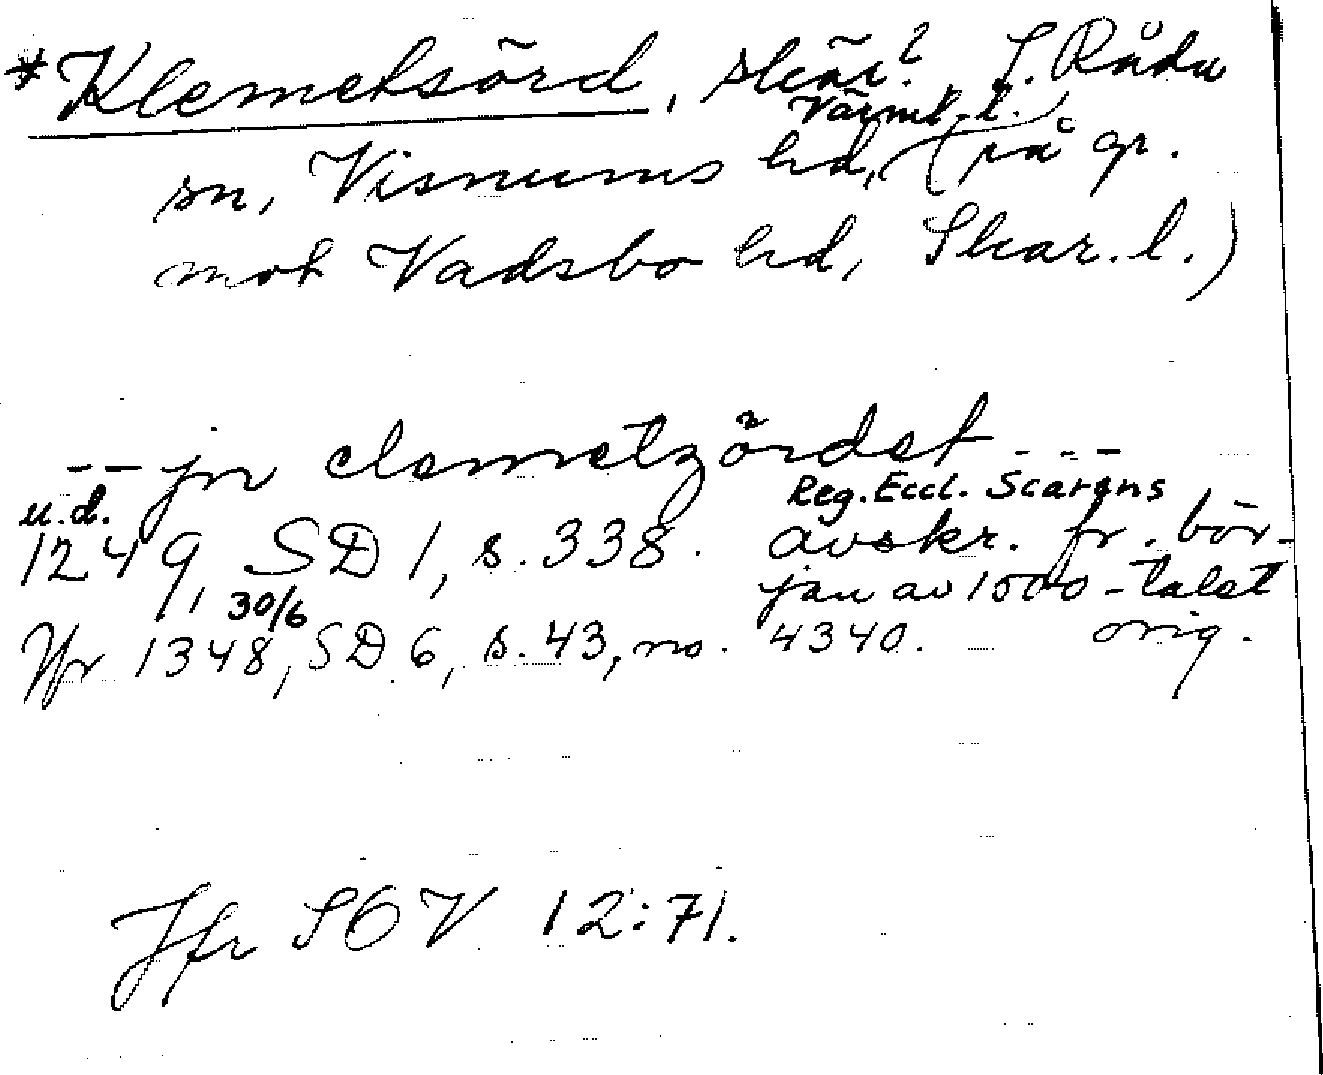 *Klemetsörd, skär? S. Råda
Värml. l.
sn, Visnums hd, (på gr.
mot Vadsbo hd, Skar. l.)
-- jn clemetzördet ---
u.d. Reg. Eccl. Scarens
1249, SD 1, s. 338. avskr. fr. bör-
jan av 1500-talet
30/6
Jfr 1348, SD 6, s. 43, no. 4340. orig.
Jfr SOV 12:71.